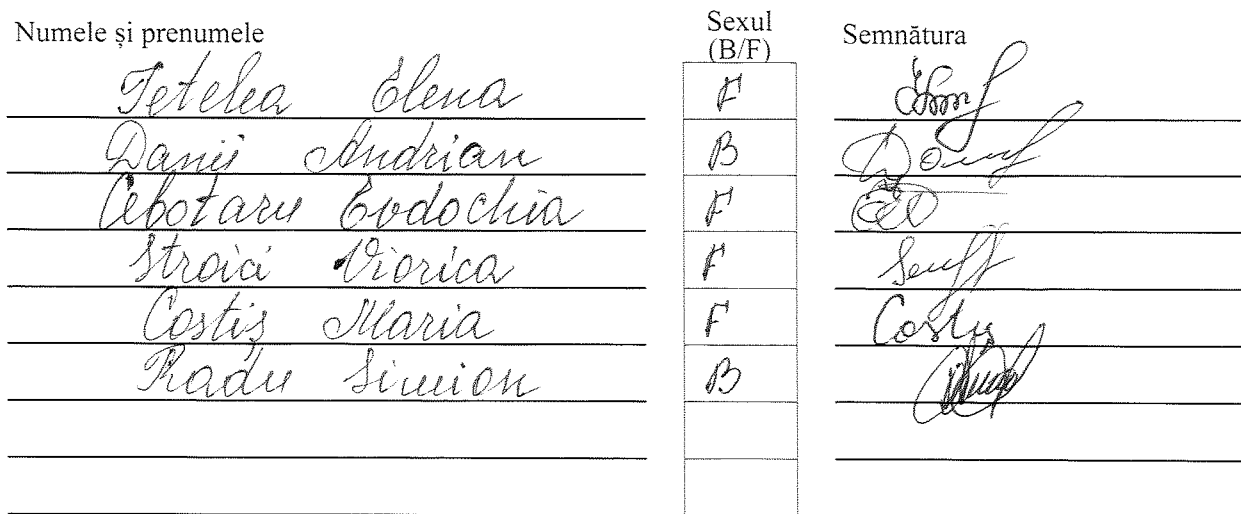 Numele și prenumele Sexul (B/F) Semnătura
Tetelea Elena F
Danii Andrian B
Cebotaru Evdochia F
Stroici Viorica F
Costiș Maria F Costiș
Radu Simion B